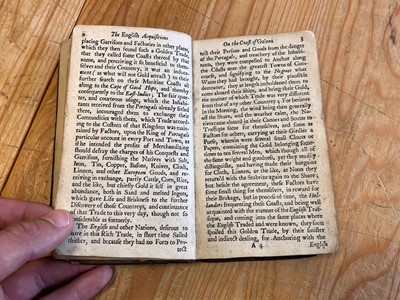 2 The English Acquisitions
placing Garrisons and Factories in other places,
which they then found such a Golden Trade,
that they called some Coasts thereof by that
name, and perceiving it so beneficial to them-
selves and their Countrey, it was an induce-
ment (as what will not Gold attract) to their
further search on these Maritine Coasts all
along to the Cape of Good Hope, and thereby
consequently to the East-Indies; The fair quar-
ter, and courteous usage, which the Inhabi-
tants received from the Portugals already setled
there, invegaged them to exchange their
Commodities with them, which Trade accord-
ing to the Custom of that Kingdom was main-
tained by Factors, upon the King of Portugals
particular account in every Port and Town, as
if he intended the profit of Merchandizing
should defray the charges of his Conquests and
Garrisons, furnishing the Natives with Salt,
Iron, Tin, Copper, Basons, Knives, Cloth,
Linnen, and other European Goods, and re-
ceiving in exchange, partly Cattle, Corn, Rice,
and the like, but chiefly Gold it self in great
abundance, both in Sand and melted Ingots,
which gave Life and Briskness to the further
Discovery of those Countreys, and continuance
of that Trade to this very day, though not so
considerable as formerly.
The English and other Nations, desirous to
share in this Rich Trade, in short time Sailed
thither, and because they had no Forts to Pro-
tect
On the Coast of Guinea 3
tect their Persons and Goods from the danger
of the Portugals, and treachery of the Inhabi-
tants, they were compelled to Anchor along
the Coasts near the greatest Towns of Com-
merce, signifying to the Negroes what
Wares they had brought, by their plausible
demeanor, they at length imboldened them to
come aboard their Ships, and bring their Gold,
the manner of which Trade was very different
from that of any other Countrey; For betimes
in the Morning, the wind being then generally
off the Shore, and the weather calm, the Na-
tives came aboard in their Canoes and Scutes to
Traffique some for themselves, and some as
Factors for others, carrying at their Girdles a
Purse, wherein were several small Clouts or
Papers, containing the Gold belonging some-
times to ten several Men, which though all of
the same weight and goodness, yet they readily di-
stinguisht, and having made their bargains
for Cloth, Linnen, or the like, at Noon they
return'd with the Seabrize again to the Shore;
but beside the agreement, these Factors have
some small thing for themselves, in reward for
their Brokage, but in process of time, the Hol-
landers frequenting these Coasts, and being well
acquainted with the manner of the English Traf-
fique, and coming into the same places where
the English Traded and were known, they soon
spoiled this Golden Trade, by their sinister
and indirect dealing, for Anchoring with the
A 4 English